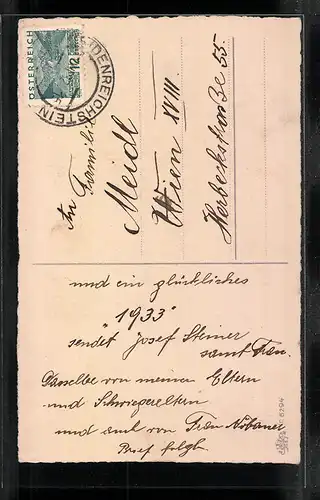 ÖSTERREICH
12
HEIDENREICHSTEIN
An Familie
Meidl
Wien XVIII.
Herbeckstraße 55.
und ein glückliches
"1933"
sendet Josef Steiner
samt Frau.
Dasselbe von meinen Eltern
und Schwiegereltern
und auch von Frau
Brief folgt
6294